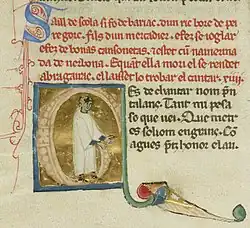 Sail de scola si fo de barac. dun ric borc de pe
regorc. fils dun mercadier. efez se ioglar
efez de bonas cansonetas. Eestet cū nainerma
da de nerbona. Equant ella mori el se rendet
abragirac. elaisset lo trobar el cantar.
Es de chantar nom
tilanc. Tant mi pesa
so que uei. Que metr
es soliom engranc. Cō
agues honor elau